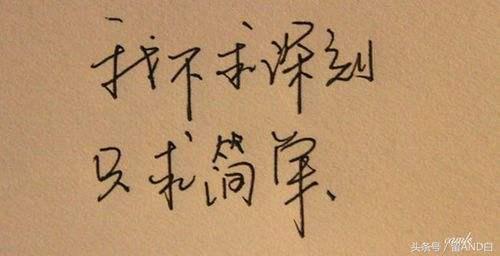 我不求深刻
只求简单
头条号/留AND白